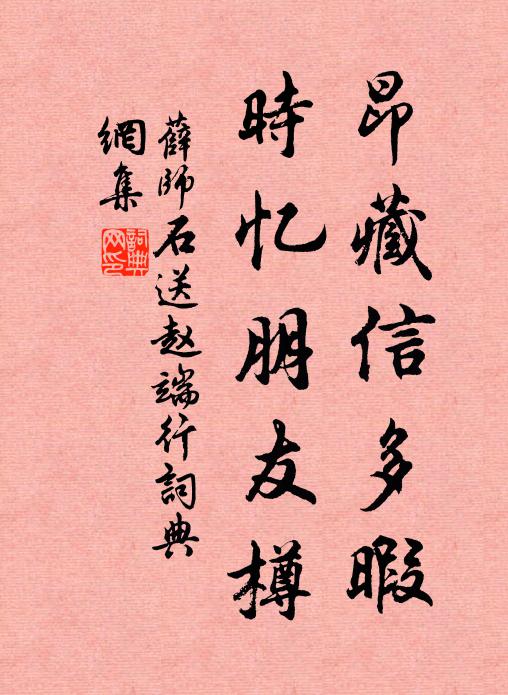 昂藏信多暇
時忆朋友樽
薛師石送赵端行詞典
網集
詞典網印